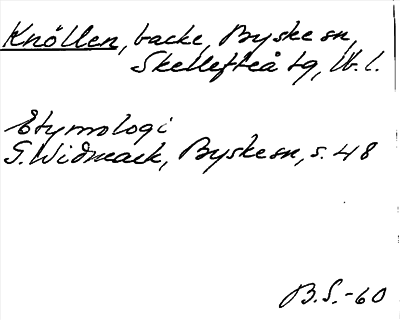 Knöllen, backe, Byske sn,
Skellefteå tg, Vb. l.
Etymologi
G. Widmark, Byske sn, s. 48
B.S.-60